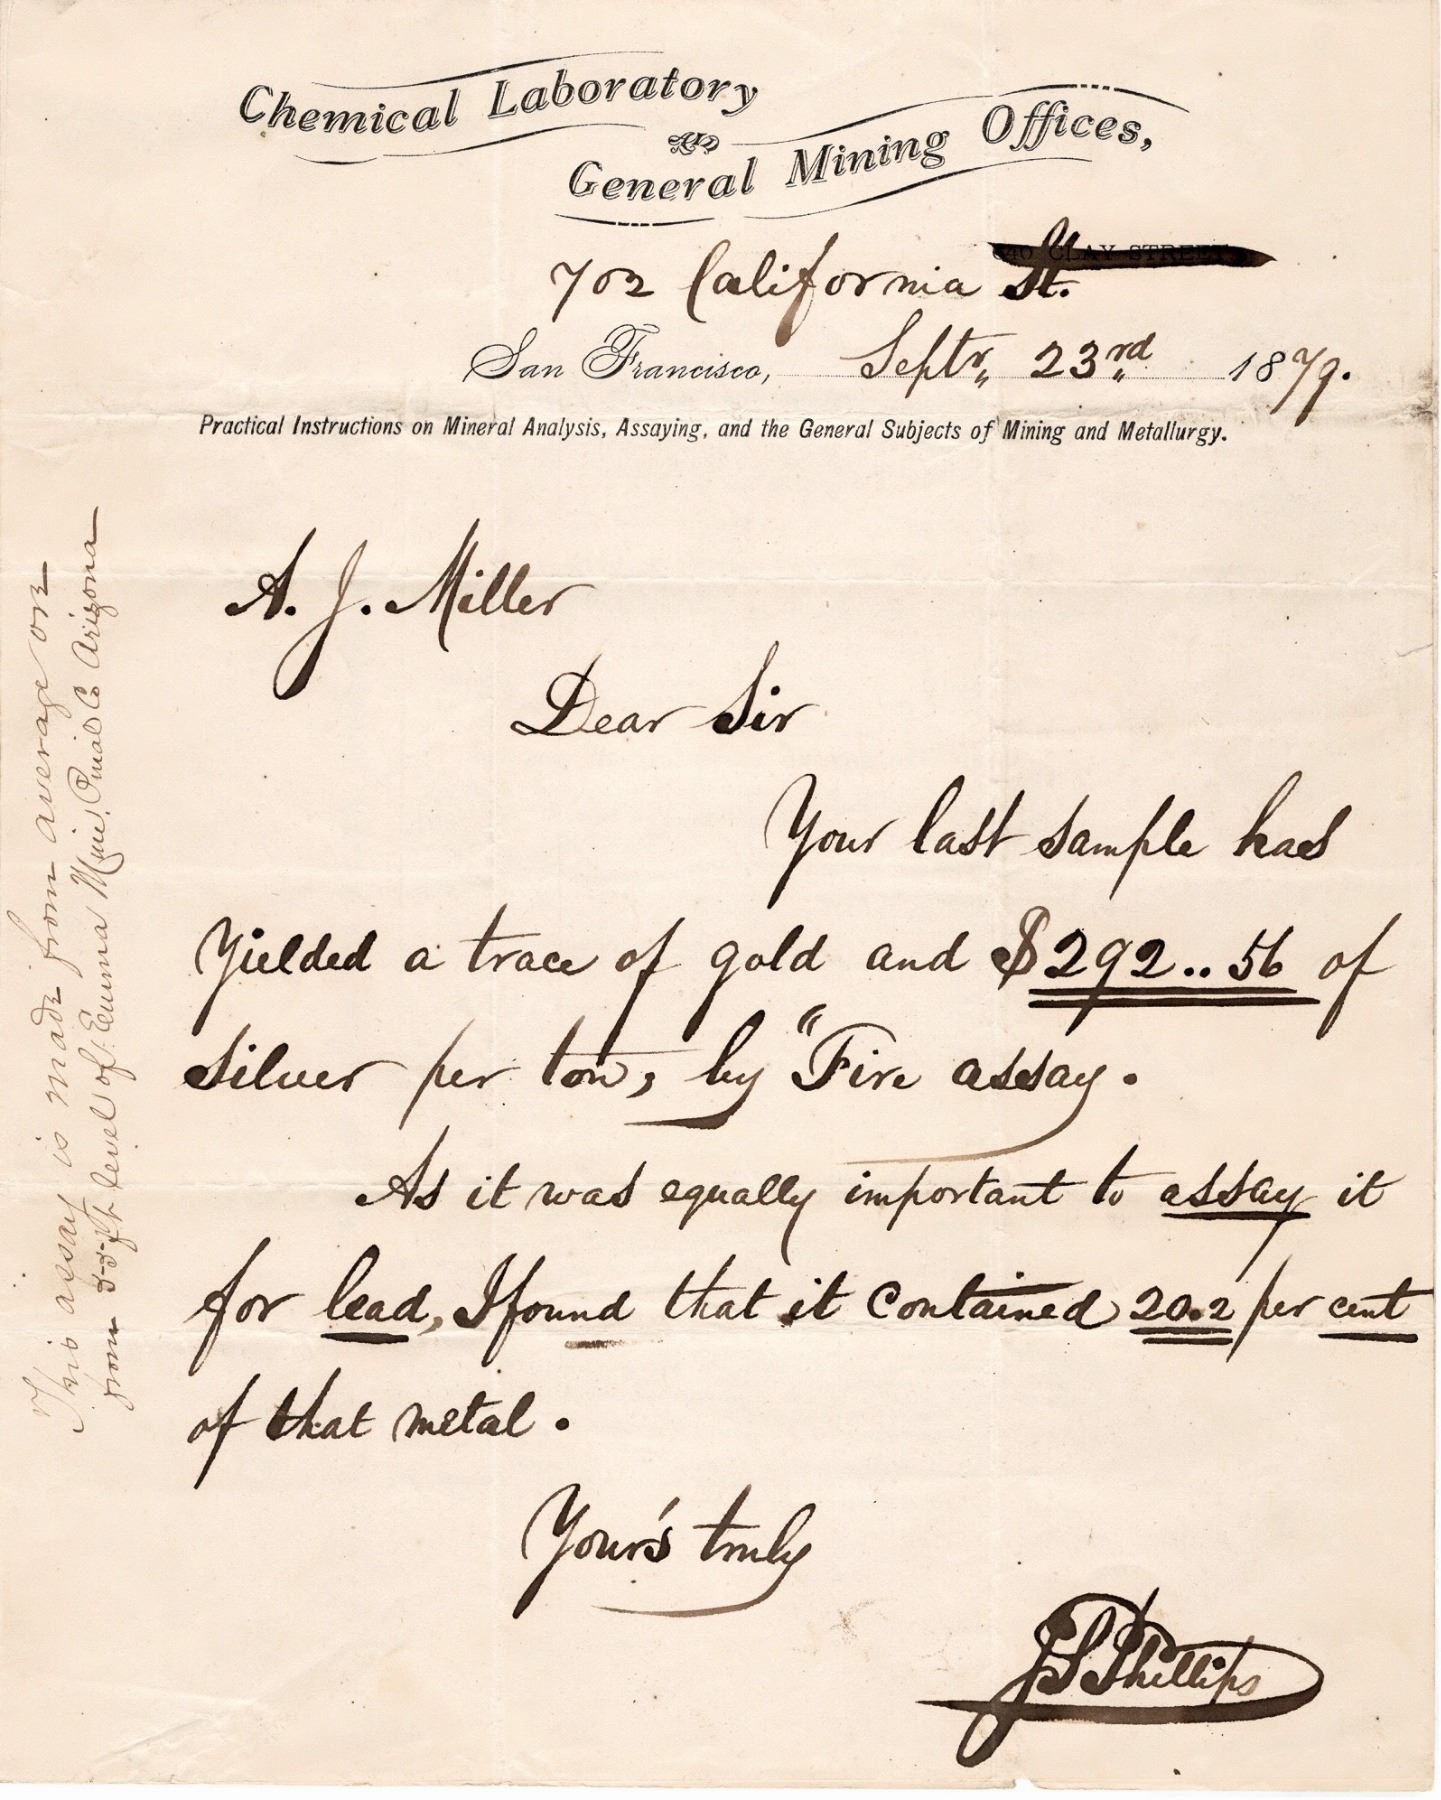 Chemical Laboratory
General Mining Offices,
CLAY STREET
702 California St.
San Francisco, Septr. 23rd 1879.
Practical Instructions on Mineral Analysis, Assaying, and the General Subjects of Mining and Metallurgy.
A. J. Miller
Dear Sir
Your last sample has
yielded a trace of gold and $292..56 of
silver per ton, by "Fire assay.
As it was equally important to assay it
for lead, I found that it contained 20.2 per cent
of that metal.
Your's truly
J S Phillips
This assay is made from average ore
from 55 ft level of Emma Mine, Pinal Co Arizona